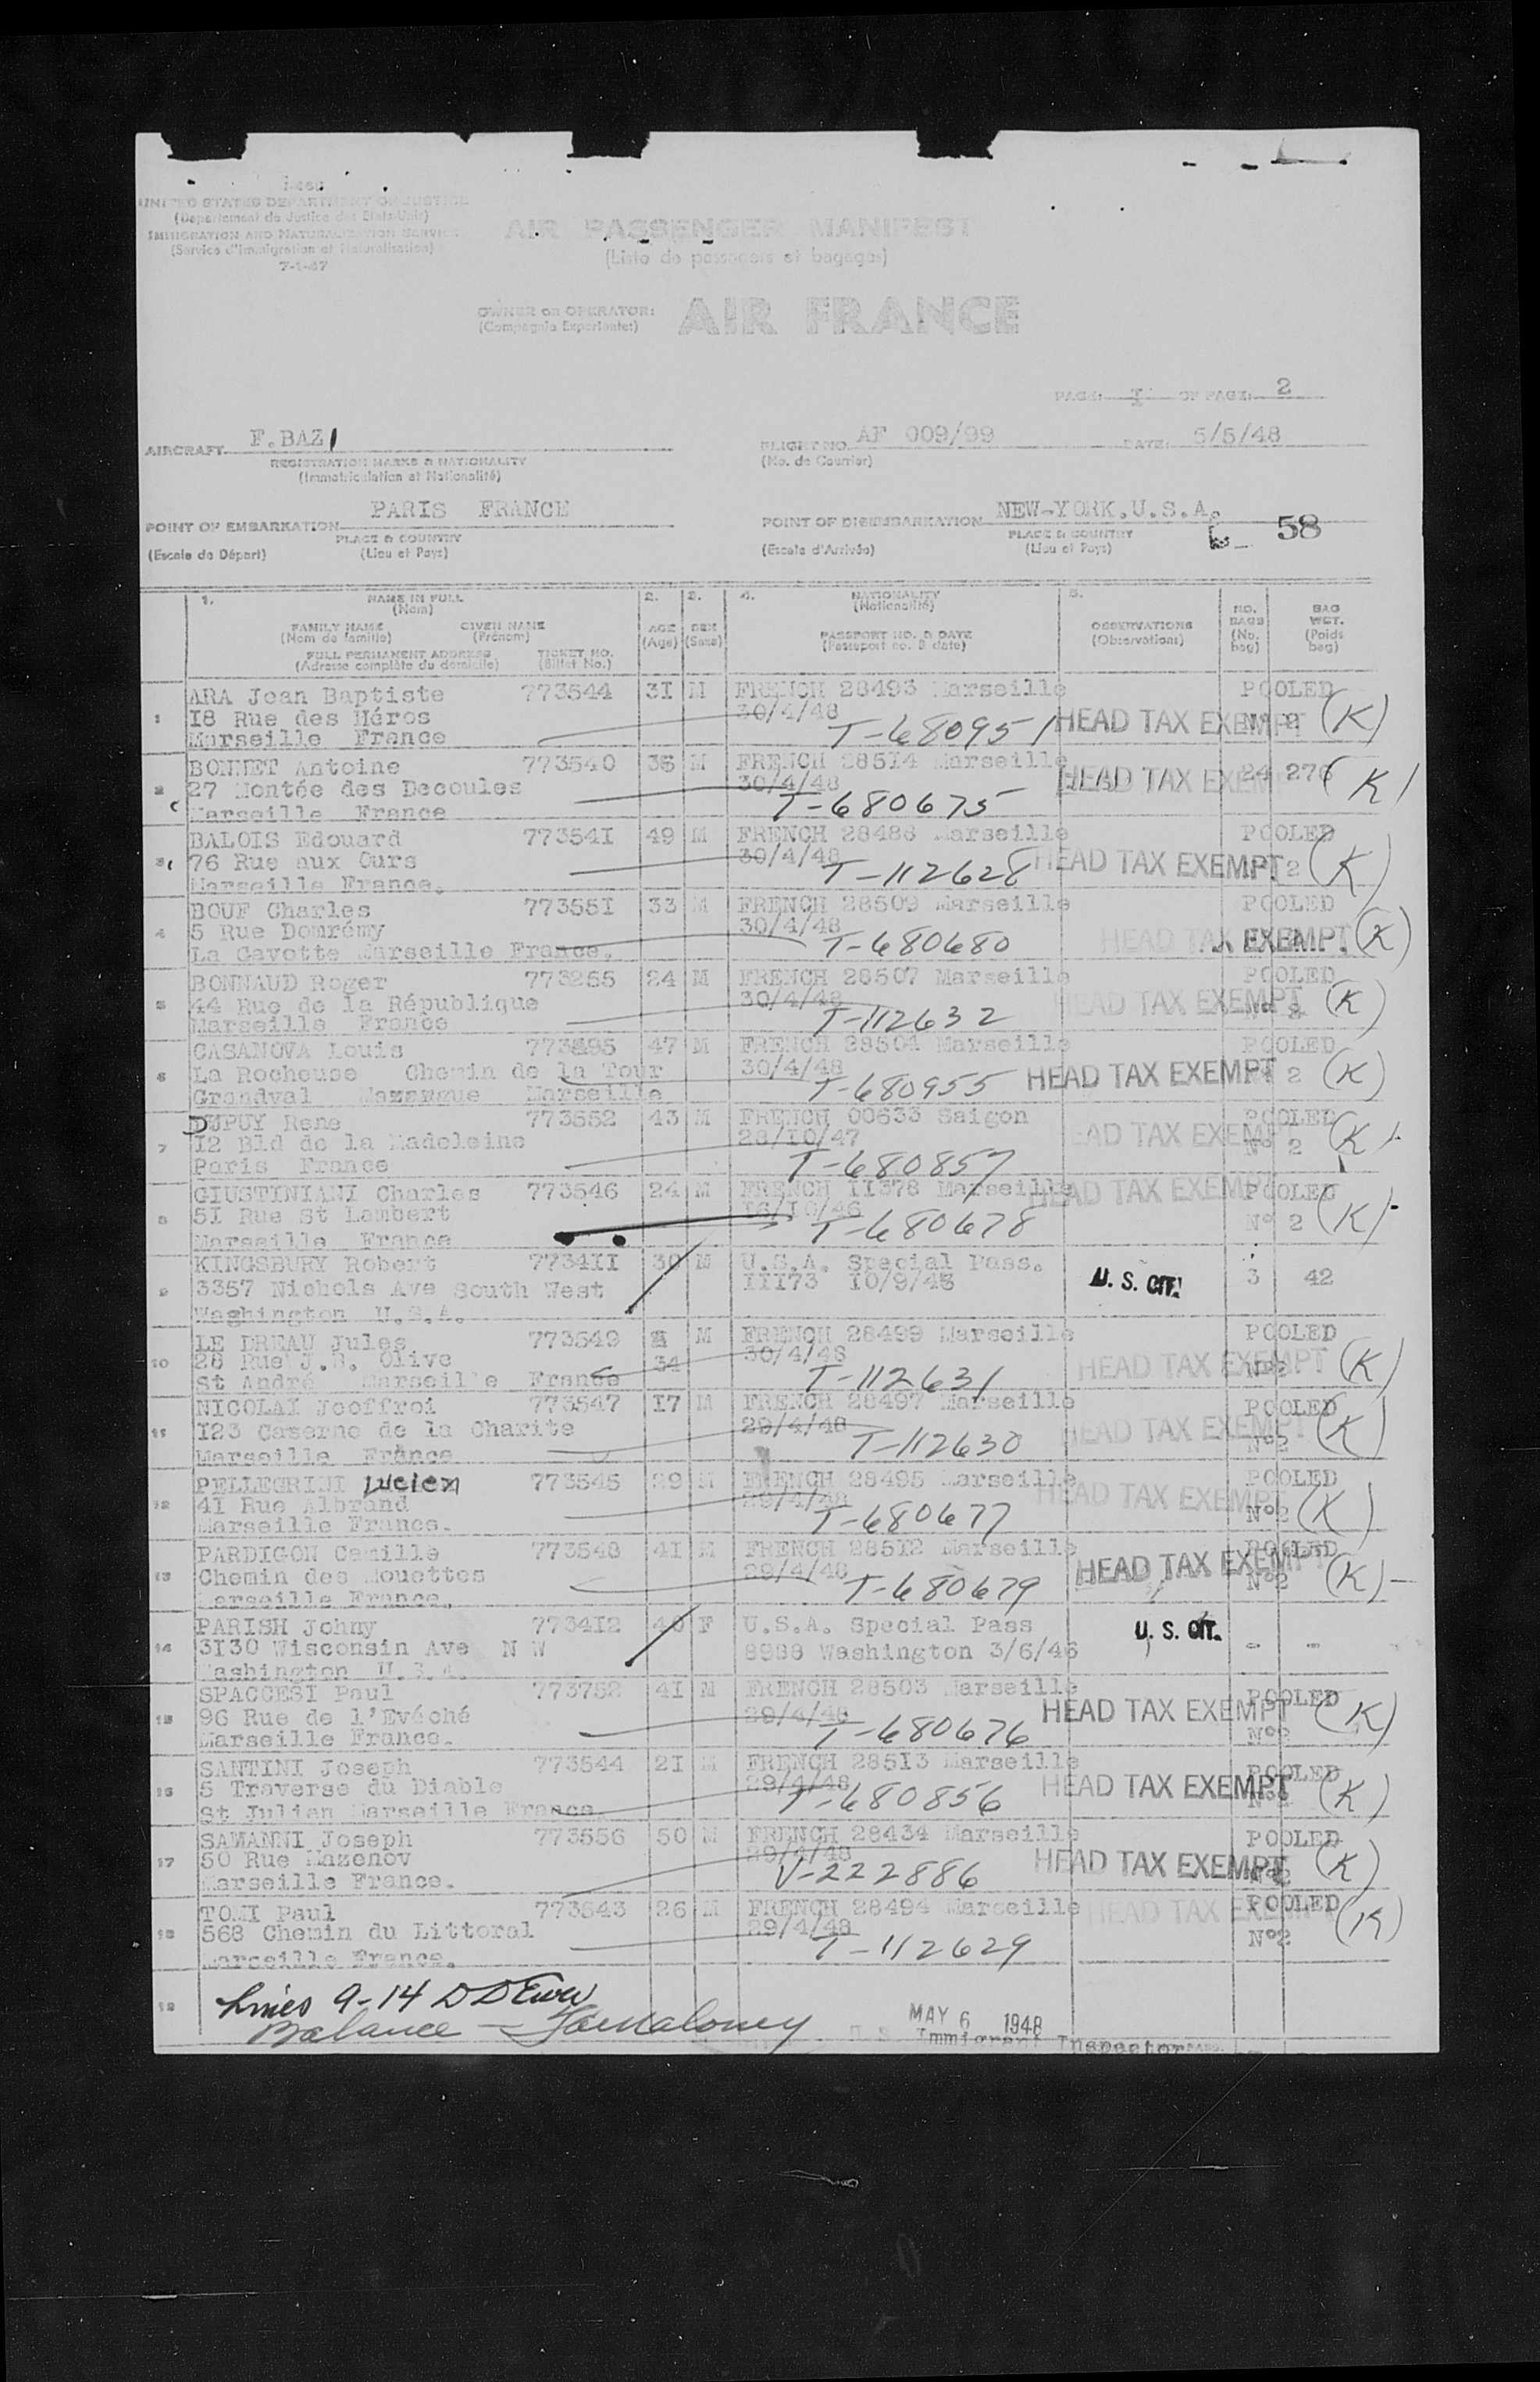 UNITED STATES DEPARTMENT OF JUSTICE
(Departement de Justice des Etats-Unis)
IMMIGRATION AND NATURALIZATION SERVICE
(Service d'Immigration et Naturalisation)
7-1-47
AIR PASSENGER MANIFEST
(Liste de passagers et bagages)
OWNER OR OPERATOR: AIR FRANCE
PAGE: I OF PAGE: 2
AIRCRAFT F.BAZI
REGISTRATION MARKS & NATIONALITY
(Immatriculation et Nationalité)
FLIGHT NO. AF 009/99 DATE: 5/5/48
(No. de Courrier)
POINT OF EMBARKATION PARIS FRANCE
PLACE & COUNTRY
(Escale de Départ) (Lieu et Pays)
POINT OF DISEMBARKATION NEW-YORK.U.S.A.
PLACE & COUNTRY
(Escale d'Arrivée) (Lieu et Pays)
58
1. NAME IN FULL 2. 3. 4. NATIONALITY 5.
(Nom) (Nationalité)
FAMILY NAME GIVEN NAME AGE SEX PASSPORT NO. & DATE OBSERVATIONS NO. BAGS BAG WGT.
(Nom de famille) (Prénom) (Age) (Sexe) (Passeport no. & date) (Observations) (No. bag) (Poids bag)
FULL PERMANENT ADDRESS TICKET NO.
(Adresse complète du domicile) (Billet No.)
1 ARA Jean Baptiste 773544 3I M FRENCH 28493 Marseille POOLED
I8 Rue des Héros 30/4/48 T-680951 HEAD TAX EXEMPT N° 2 (K)
Marseille France
2 BONNET Antoine 773540 M FRENCH 285I4 Marseille 24 276
27 Montée des Decoules 30/4/48 T-680675 HEAD TAX EXEMPT (K)
Marseille France
3 BALOIS Edouard 77354I 49 M FRENCH 28486 Marseille POOLED
76 Rue aux Ours 30/4/48 T-112628 HEAD TAX EXEMPT 2 (K)
Marseille France.
4 BOUF Charles 77355I 33 M FRENCH 28509 Marseille POOLED
5 Rue Domrémy 30/4/48 T-680680 HEAD TAX EXEMPT (K)
La Gavotte Marseille France.
5 BONNAUD Roger 773255 24 M FRENCH 28507 Marseille POOLED
44 Rue de la République 30/4/48 T-112632 HEAD TAX EXEMPT N° 2 (K)
Marseille France
6 CASANOVA Louis 47 M FRENCH 28504 Marseille POOLED
La Rocheuse Chemin de la Tour 30/4/48 T-680955 HEAD TAX EXEMPT N° 2 (K)
Grandval Mazargue Marseille
7 DUPUY Rene 773552 43 M FRENCH 00633 Saigon POOLED
I2 Bld de la Madeleine 28/I0/47 T-680857 HEAD TAX EXEMPT N° 2 (K)
Paris France
8 GIUSTINIANI Charles 773546 24 M FRENCH II378 Marseille HEAD TAX EXEMPT POOLED
5I Rue St Lambert I6/I0/46 T-680678 N° 2 (K)
Marseille France
9 KINGSBURY Robert 7734II 30 M U.S.A. Special Pass. 3 42
3357 Nichols Ave South West III73 I0/9/45 U. S. CIT.
Washington U.S.A.
10 LE DREAU Jules 773549 34 M FRENCH 28499 Marseille POOLED
28 Rue J.B. Olive 30/4/48 T-112631 HEAD TAX EXEMPT N°2 (K)
St André Marseille France
11 NICOLAI Jeoffroi 773547 I7 M FRENCH 28497 Marseille POOLED
I23 Caserne de la Charite 29/4/48 T-112630 HEAD TAX EXEMPT N°2 (K)
Marseille France
12 PELLEGRINI Lucien 773545 29 M FRENCH 28495 Marseille POOLED
4I Rue Albrand 29/4/48 T-680677 HEAD TAX EXEMPT N°2 (K)
Marseille France.
13 PARDIGON Camille 773548 4I M FRENCH 285I2 Marseille POOLED
Chemin des Mouettes 29/4/48 T-680679 HEAD TAX EXEMPT N°2 (K)
Marseille France.
14 PARISH Johny 7734I2 40 F U.S.A. Special Pass U. S. CIT.
3I30 Wisconsin Ave N W 8988 Washington 3/6/46 - -
Washington U.S.A.
15 SPACCESI Paul 773752 4I M FRENCH 28503 Marseille POOLED
96 Rue de l'Evéché 29/4/48 T-680676 HEAD TAX EXEMPT N°2 (K)
Marseille France.
16 SANTINI Joseph 773544 2I M FRENCH 285I3 Marseille POOLED
5 Traverse du Diable 29/4/48 T-680856 HEAD TAX EXEMPT N°2 (K)
St Julian Marseille France.
17 SAMANNI Joseph 773556 50 M FRENCH 28434 Marseille POOLED
50 Rue Mazenov 29/4/48 V-222886 HEAD TAX EXEMPT N°2 (K)
Marseille France.
18 TOMI Paul 773543 26 M FRENCH 28494 Marseille POOLED
568 Chemin du Littoral 29/4/48 T-112629 HEAD TAX EXEMPT N°2 (K)
Marseille France.
19 Lines 9-14
Balance - MAY 6 1948
U.S. Immigrant Inspector